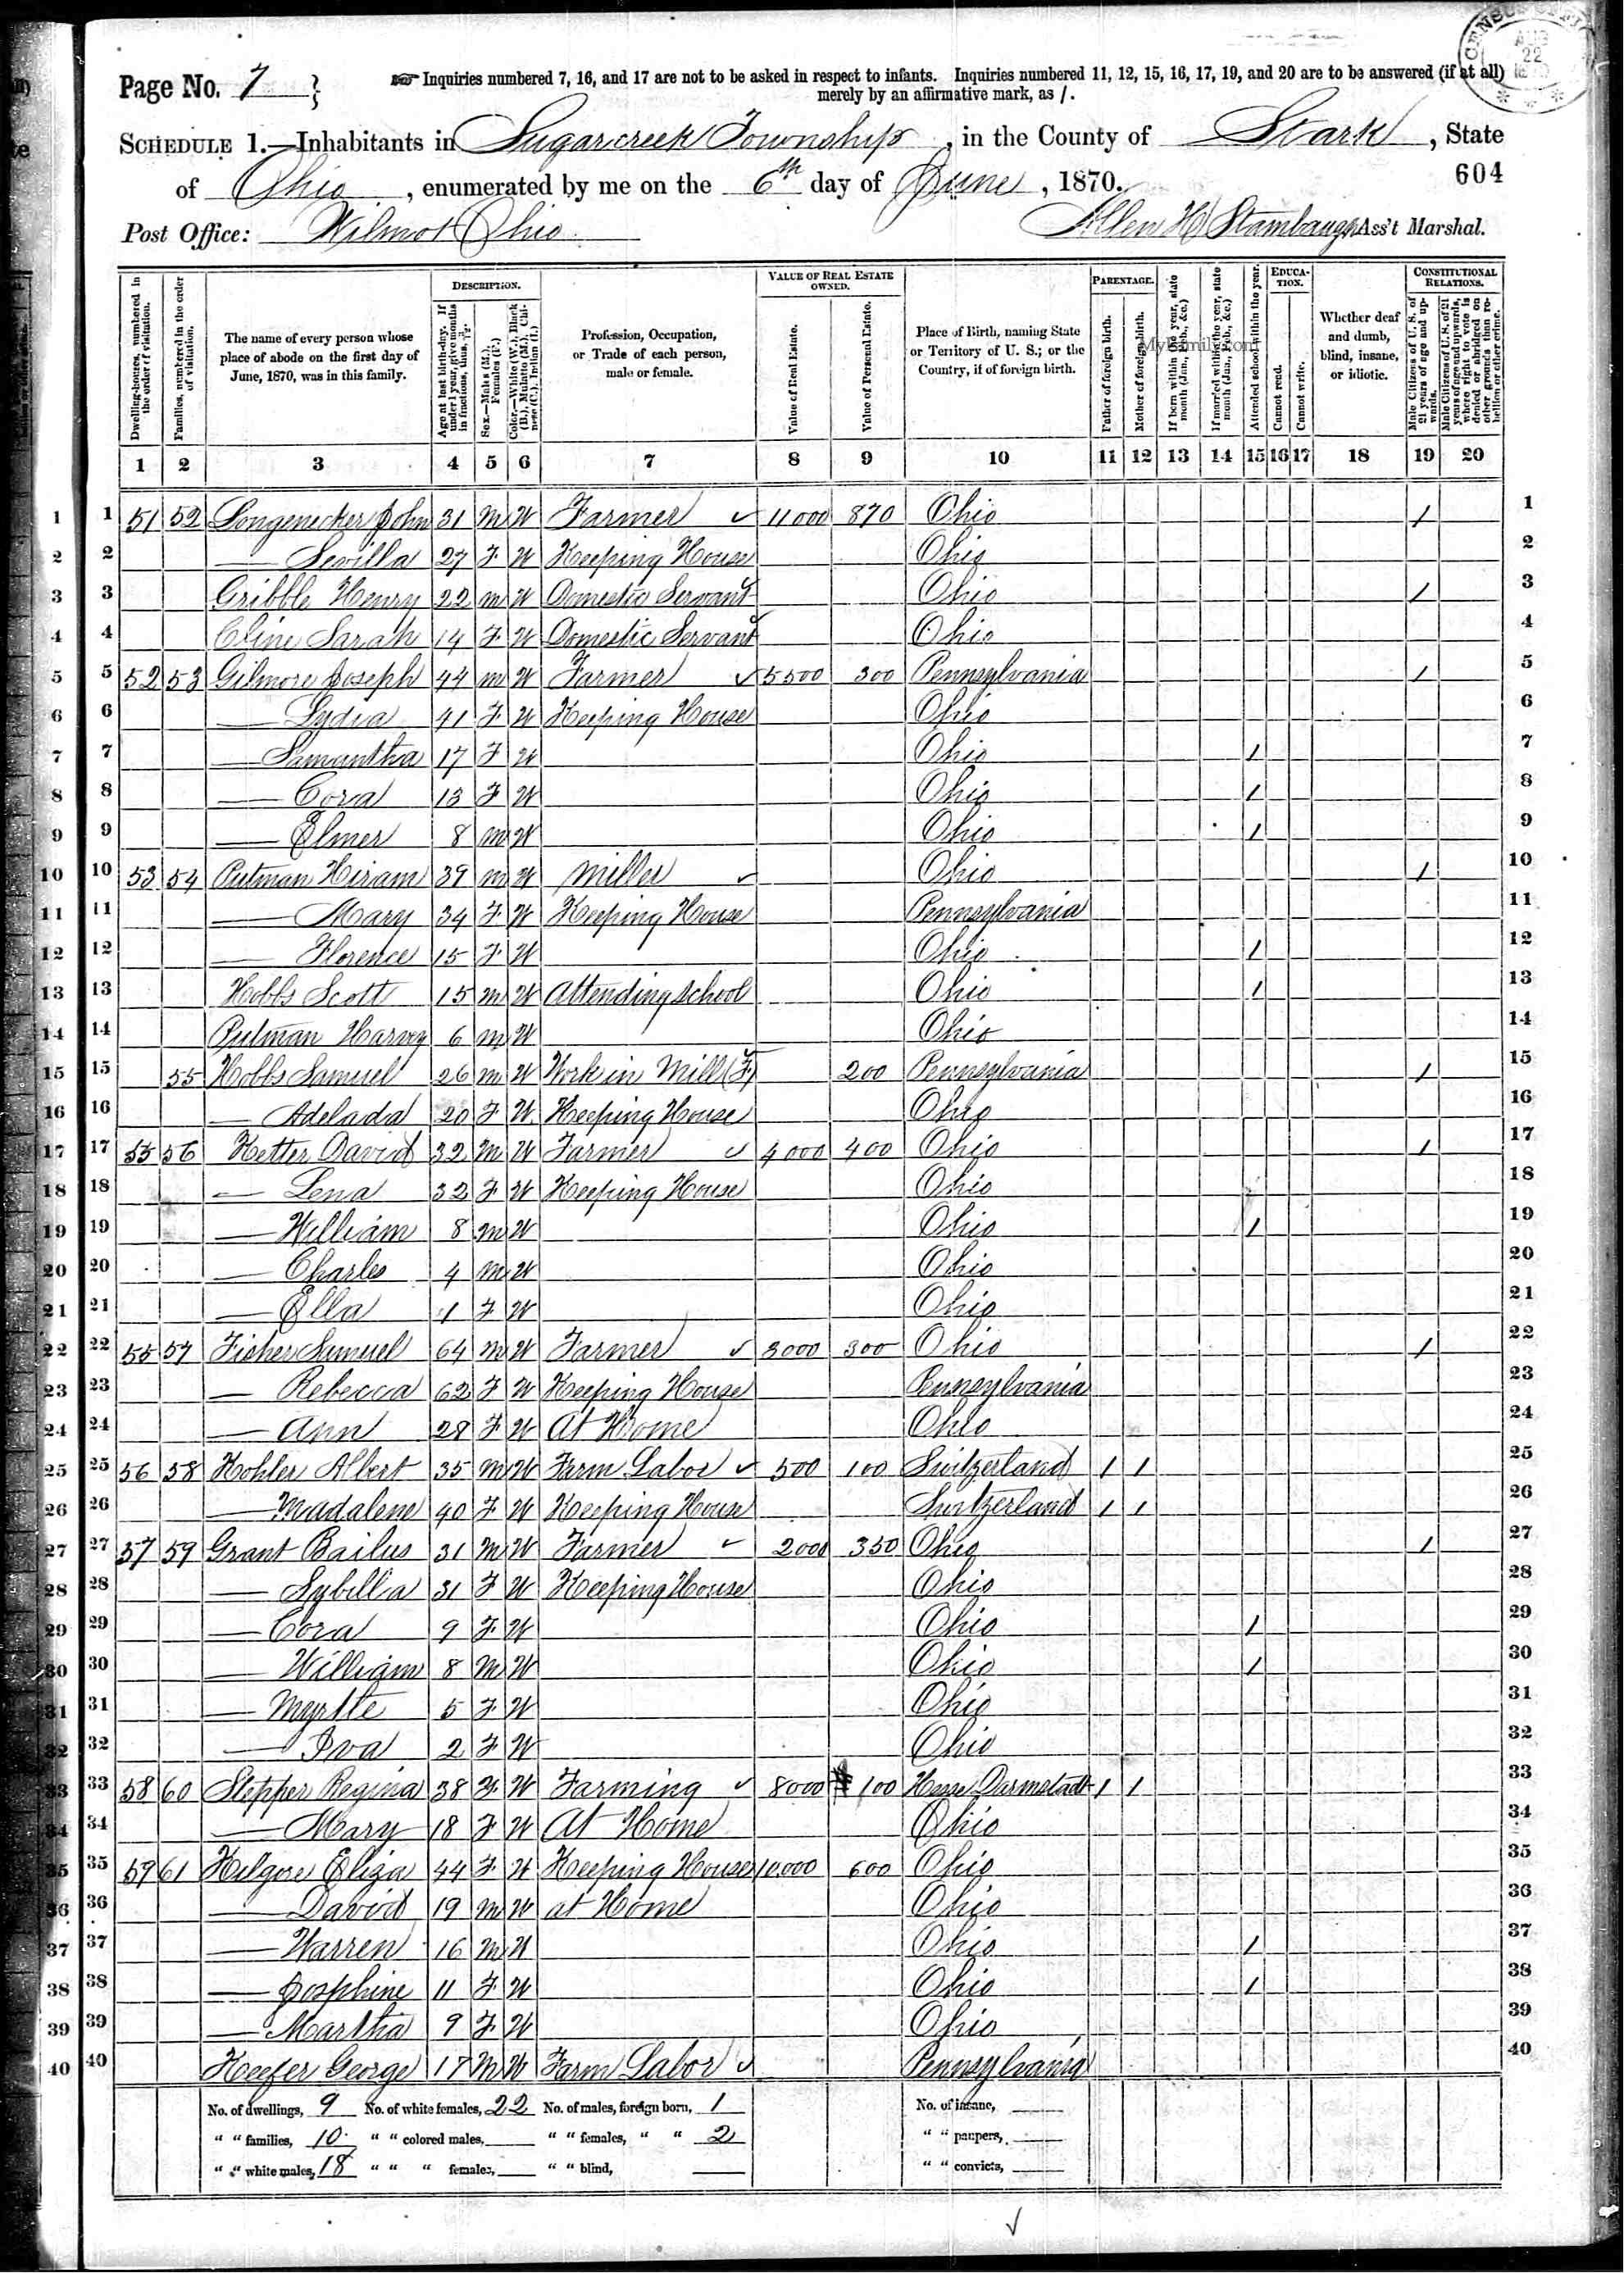 Page No. 7
Inquiries numbered 7, 16, and 17 are not to be asked in respect to infants. Inquiries numbered 11, 12, 15, 16, 17, 19, and 20 are to be answered (if at all)
merely by an affirmative mark, as /.
CENSUS
AUG
22
SCHEDULE 1.—Inhabitants in Sugarcreek Township, in the County of Stark, State
of Ohio, enumerated by me on the 6th day of June, 1870.
604
Post Office: Wilmot Ohio
Allen H Stambaugh, Ass't Marshal.
Dwelling-houses, numbered in the order of visitation.
Families, numbered in the order of visitation.
The name of every person whose place of abode on the first day of June, 1870, was in this family.
DESCRIPTION.
Age at last birth-day. If under 1 year, give months in fractions, thus, 3/12.
Sex.—Males (M.), Females (F.)
Color.—White (W.), Black (B.), Mulatto (M.), Chinese (C.), Indian (I.)
Profession, Occupation, or Trade of each person, male or female.
VALUE OF REAL ESTATE OWNED.
Value of Real Estate.
Value of Personal Estate.
Place of Birth, naming State or Territory of U. S.; or the Country, if of foreign birth.
MyFamily.com
PARENTAGE.
Father of foreign birth.
Mother of foreign birth.
If born within the year, state month (Jan., Feb., &c.)
If married within the year, state month (Jan., Feb., &c.)
Attended school within the year.
EDUCATION.
Cannot read.
Cannot write.
Whether deaf and dumb, blind, insane, or idiotic.
CONSTITUTIONAL RELATIONS.
Male Citizens of U. S. of 21 years of age and upwards.
Male Citizens of U. S. of 21 years of age and upwards, where right to vote is denied or abridged on other grounds than rebellion or other crime.
1 2 3 4 5 6 7 8 9 10 11 12 13 14 15 16 17 18 19 20
1 1 51 52 Longenecker John 31 M W Farmer ✓ 11000 870 Ohio / 1
2 2 — Sevilla 27 F W Keeping House Ohio 2
3 3 Gribble Henry 22 m W Domestic Servant ✓ Ohio / 3
4 4 Cline Sarah 14 F W Domestic Servant ✓ Ohio 4
5 5 52 53 Gilmore Joseph 44 m W Farmer ✓ 5500 300 Pennsylvania / 5
6 6 — Lydia 41 F W Keeping House Ohio 6
7 7 — Samantha 17 F W Ohio / 7
8 8 — Cora 13 F W Ohio / 8
9 9 — Elmer 8 m W Ohio / 9
10 10 53 54 Putman Hiram 39 m W Miller ✓ Ohio / 10
11 11 — Mary 34 F W Keeping House Pennsylvania 11
12 12 — Florence 15 F W Ohio / 12
13 13 Hobbs Scott 15 m W Attending School Ohio / 13
14 14 Putman Harvey 6 m W Ohio 14
15 15 55 Hobbs Samuel 26 m W Work in Mill (F) 200 Pennsylvania / 15
16 16 — Adelada 20 F W Keeping House Ohio 16
17 17 55 56 Ketter David 32 M W Farmer ✓ 4000 400 Ohio / 17
18 18 — Lena 32 F W Keeping House Ohio 18
19 19 — William 8 m W Ohio / 19
20 20 — Charles 4 m W Ohio 20
21 21 — Ella 1 F W Ohio 21
22 22 55 57 Fisher Samuel 64 M W Farmer ✓ 3000 300 Ohio / 22
23 23 — Rebecca 62 F W Keeping House Pennsylvania 23
24 24 — Ann 28 F W At Home Ohio 24
25 25 56 58 Kohler Albert 35 M W Farm Labor ✓ 500 100 Switzerland / / 25
26 26 — Madalene 40 F W Keeping House Switzerland / / 26
27 27 57 59 Grant Bailus 31 M W Farmer ✓ 2000 350 Ohio / 27
28 28 — Sybilla 31 F W Keeping House Ohio 28
29 29 — Cora 9 F W Ohio / 29
30 30 — William 8 M W Ohio / 30
31 31 — Myrtte 5 F W Ohio 31
32 32 — Iva 2 F W Ohio 32
33 33 58 60 Slepper Regina 38 F W Farming ✓ 8000 100 Hesse Darmstadt / / 33
34 34 — Mary 18 F W At Home Ohio 34
35 35 59 61 Kilgore Eliza 44 F W Keeping House 10000 600 Ohio 35
36 36 — David 19 M W at Home Ohio 36
37 37 — Warren 16 M W Ohio / 37
38 38 — Josphine 11 F W Ohio / 38
39 39 — Martha 9 F W Ohio 39
40 40 Keefer George 17 M W Farm Labor ✓ Pennsylvania 40
No. of dwellings, 9 No. of white females, 22 No. of males, foreign born, 1 No. of insane,
" " families, 10 " " colored males, " " females, " " 2 " " paupers,
" " white males, 18 " " " females, " " blind, " " convicts,
✓